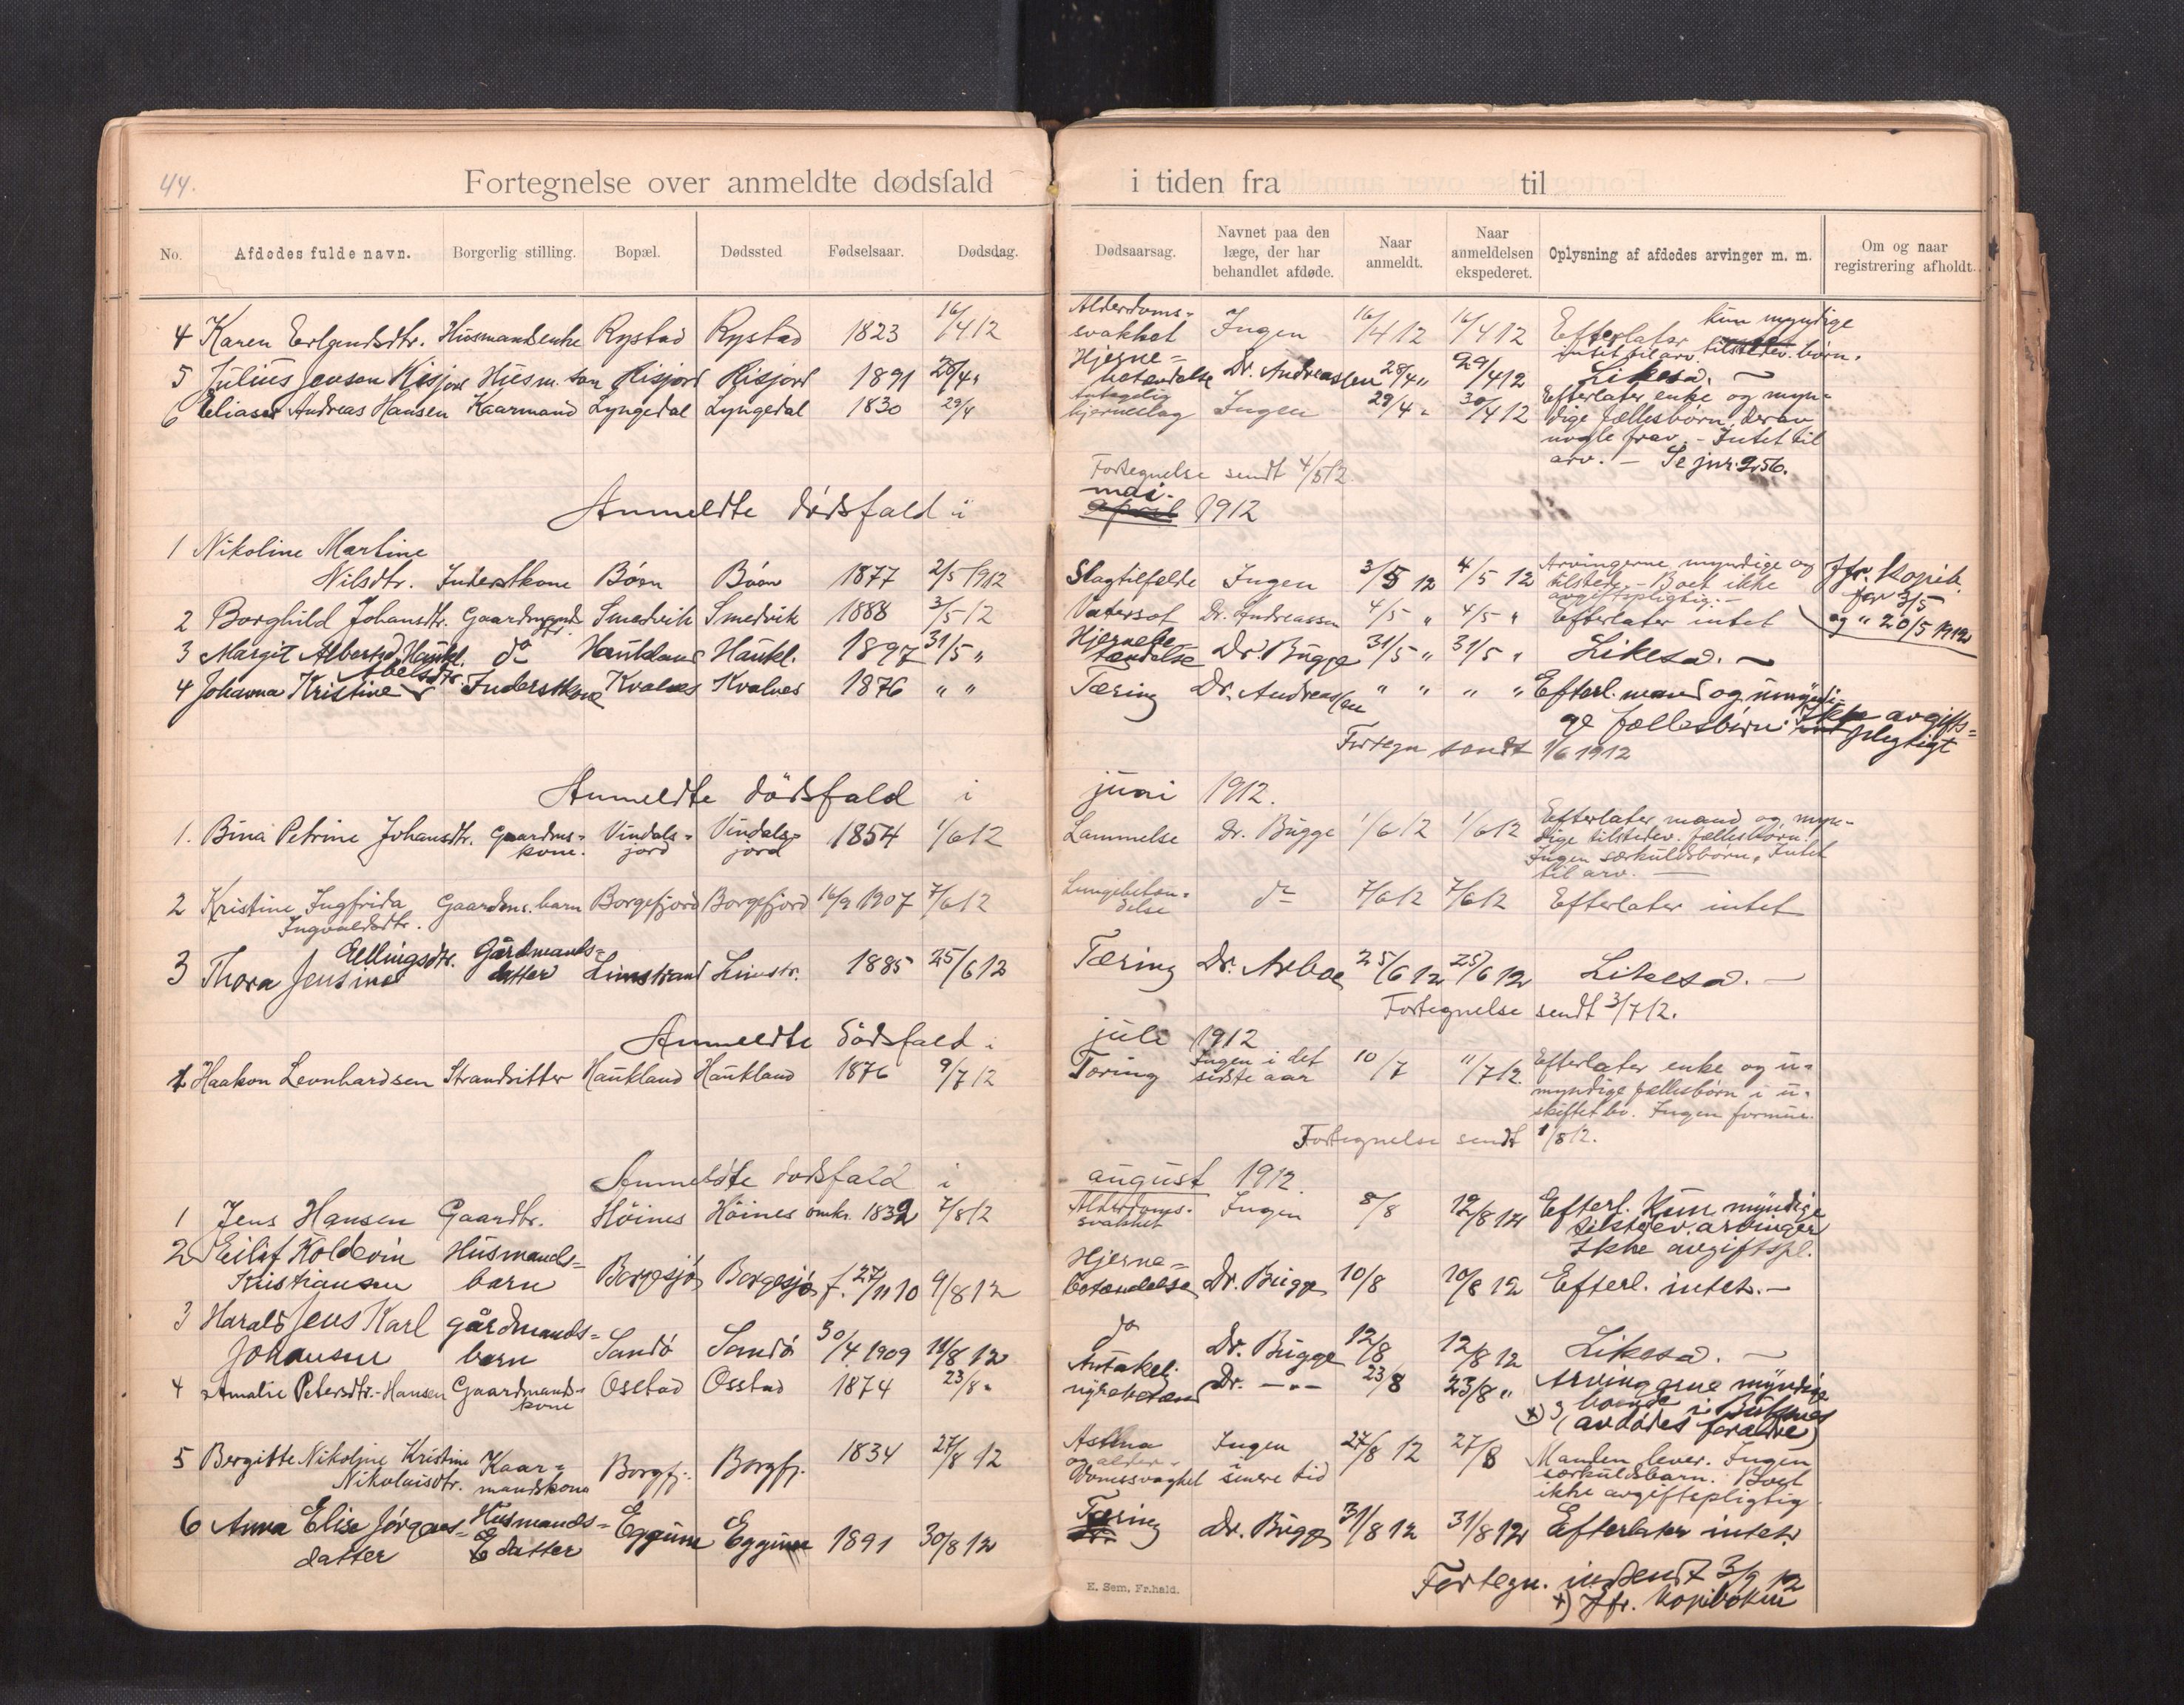 44.
Fortegnelse over anmeldte dødsfald i tiden fra til
No. Afdødes fulde navn. Borgerlig stilling. Bopæl. Dødssted Fødselsaar. Dødsdag. Dødsaarsag. Navnet paa den læge, der har behandlet afdøde. Naar anmeldt. Naar anmeldelsen ekspederet. Oplysning af afdødes arvinger m. m. Om og naar registrering afholdt.
4 Karen Erlandsdtr. Husmandsenke Rystad Rystad 1823 16/4 12 Alderdoms-svakhet Ingen 16/4 12 16/4 12 Efterlater kun myndige tilstedev. børn. intet til arv
5 Julius Jensen Risjord Husm. søn Risjord Risjord 1891 28/4 " Hjerne-betændelse Dr. Andreassen 28/4 " 29/4 12 Likesaa. —
6 Elias Andreas Hansen Kaarmand Lyngedal Lyngedal 1830 29/4 Antagelig hjerneslag Ingen 29/4 " 30/4 12 Efterlater enke og myn-
dige fællesbørn, derav
nogle frav. - Intet til
arv. — Se jnr. 256.
Fortegnelse sendt 4/5 12.
Anmeldte dødsfald i mai april 1912
1 Nikoline Martine
Nilsdtr. Inderstkone Bøen Bøen 1877 2/5 1912 Slagtilfelde Ingen 3/5 12 4/5 12 Arvingerne myndige og tilstede. - Boet ikke avgiftspligtig. — Jfr. kopib. for 3/5 og " 20/5 1912
2 Borghild Johansdtr. Gaardmands dtr. Smedvik Smedvik 1888 3/5 12 Vatersot Dr. Andreassen 4/5 " 4/5 " Efterlater intet
3 Margit Albertsd. Haukl. do Haukland Haukl. 1897 31/5 " Hjernebe-tændelse Dr. Bugge 31/5 " 31/5 " Likesaa. —
4 Johanna Kristine Abelsdtr. Inderstkone Kvalnes Kvalnes 1876 " " Tæring Dr. Andreassen " " " " Efterl. mand og umyndi-
ge fællesbørn. Ikke avgifts-pligtigt
Fortegn. sendt 1/6 1912
Anmeldte dødsfald i juni 1912.
1. Bina Petrine Johansdtr. Gaardms-kone. Vindals-jord Vindals-jord 1854 1/6 12 Lammelse Dr. Bugge 1/6 12 1/6 12 Efterlater mand og myn-
dige tilstedev. fællesbørn.
Ingen særkuldsbørn. Intet
til arv. —
2 Kristine Ingfrida Ingvaldsdtr. Gaardms. barn Borgefjord Borgefjord 16/9 1907 7/6 12 Lungebeten-delse do 7/6 12 7/6 12 Efterlater intet
3 Thora Jensine Ellingsdtr. Gårdmands-datter Limstrand Limstr. 1885 25/6 12 Tæring Dr. Arboe 25/6 12 25/6 12 Likesaa. —
Fortegnelse sendt 3/7 12.
Anmeldte dødsfald i juli 1912
1 Haakon Leonhardsen Strandsitter Haukland Haukland 1876 9/7 12 Tæring Ingen i det sidste aar 10/7 11/7 12. Efterlater enke og u-
myndige fællesbørn i u-
skiftet bo. Ingen formue.
Fortegnelse sendt 1/8 12.
Anmeldte dødsfald i august 1912.
1 Jens Hansen Gaardbr. Høines Høines omkr. 1832 7/8 12 Alderdoms-svakhet Ingen 8/8 12/8 12 Efterl. kun myndige
tilstedev. arvinger
Ikke avgiftspl.
2 Eilif Koldevin Kristiansen Husmands-barn Borgesjø Borgesjø f. 27/11 10 9/8 12 Hjerne-betændelse Dr. Bugge 10/8 10/8 12 Efterl. intet. —
3 Harald Jens Karl Johansen gårdmands-barn Sandø Sandø 30/4 1909 11/8 12 do Dr. Bugge 12/8 12/8 12 Likesaa. —
4 Amalie Petersdtr.-Hansen Gaardmands-kone Osstad Osstad 1874 23/8 " Antakel. nyrebetænd Dr. — " — 23/8 23/8 " Arvingerne myndige
x) boende i
(avdødes forældre)
5 Bergitte Nikoline Kristine Nikolaisdtr. Kaar-mandskone Borgfj. Borgfj. 1834 27/8 12 Astma og alder-domssvaghet Ingen i senere tid 27/8 12 27/8 Manden lever. Ingen
særkuldsbarn. Boet
ikke avgiftspligtig.
6 Anna Elise Jørgens-datter Husmands-datter Eggum Eggum 1891 30/8 12 Tæring Dr. Bugge 31/8 12 31/8 12 Efterlater intet.
Fortegn. indsendt 3/9 12
x) Jfr. kopiboken
E. Sem, Fr.hald.